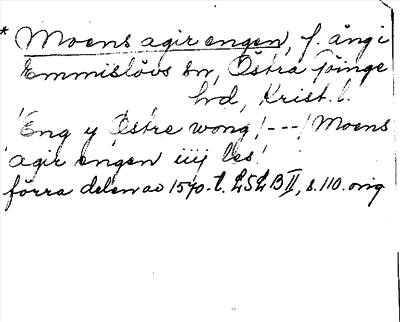 * Moens agir engen, f. äng i
Emmislövs sn, Östra Göinge
hd, Krist. l.
'Eng y Østre wong /---/ Moens
agir engen iiij les'
förra delen av 1570-t. LSLB II, s. 110. orig